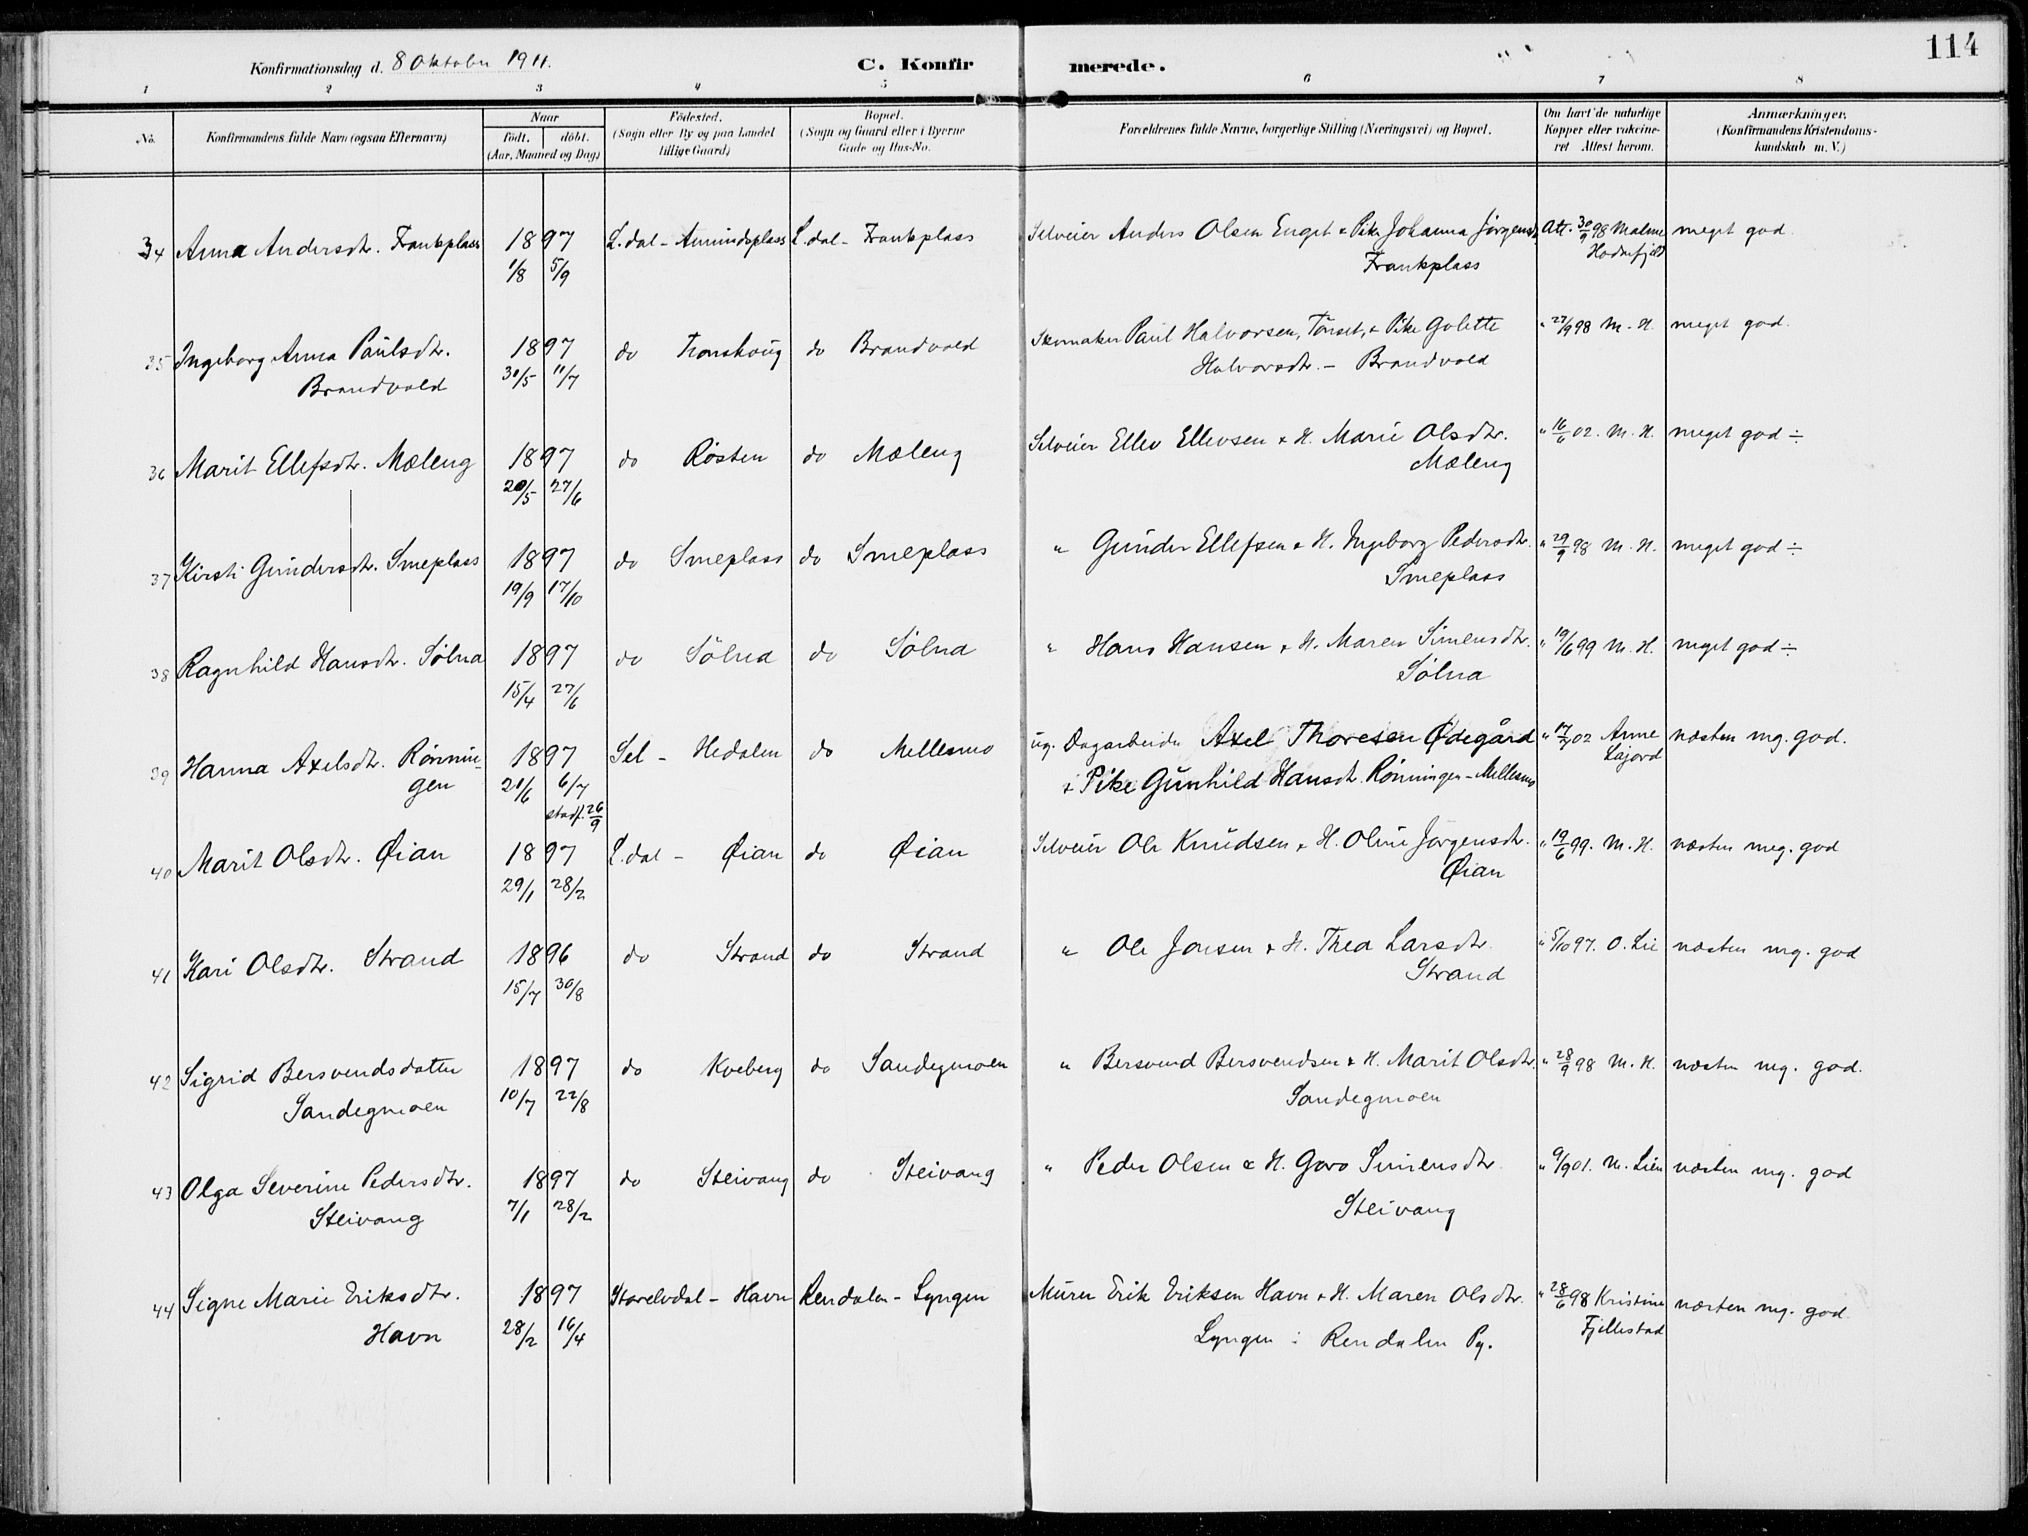 Konfirmationsdag d. 8 Oktober 1911. C. Konfirmerede. 114
1 2 3 4 5 6 7 8
No. Konfirmandens fulde Navn (ogsaa Efternavn) Naar födt. döbt. (Aar, Maaned og Dag) Födested. (Sogn eller By og paa Landet tillige Gaard) Bopæl. (Sogn og Gaard eller i Byerne Gade og Hus-No. Forældrenes fulde Navne, borgerlige Stilling (Næringsvei) og Bopæl. Om havt de naturlige Kopper eller vakcineret Attest herom. Anmærkninger. (Konfirmandens Kristendomskundskab m. V.)
34 Anna Andersdtr. Frankplass 1897 L.dal - Amundsplass L.dal - Frankplass Selveier Anders Olsen Enget & Pike Johanna Jørgensd. Att. 30/9 98 Malene meget god.
1/8 5/9 Frankplass Hodnefjeld
35 Ingeborg Anna Paulsdtr. 1897 do Tronskoug do Brandvold Skomaker Paul Halvorsen, Tönset, & Pike Golette " 27/9 98 M. H. meget god.
Brandvold 30/5 11/7 Halvorsdtr. - Brandvold
36 Marit Ellefsdtr. Mæleng 1897 do Røsten do Mæleng Selveier Ellev Ellevsen & H. Marie Olsdtr. " 16/6 02. M. H. meget god ÷
20/5 27/6 Mæleng
37 Kirsti Gundersdtr. Smeplass 1897 do Smeplass do Smeplass " Gunder Ellefsen & H. Ingeborg Pedersdtr. " 29/9 98 M. H. meget god ÷
19/9 17/10 Smeplass
38 Ragnhild Hansdtr. Sølna 1897 do Sølna do Sølna " Hans Hansen & H. Maren Simensdtr. " 19/6 99 M. H. meget god ÷
15/4 27/6 Sølna
39 Hanna Axelsdtr. Rønnin- 1897 Sel - Hedalen do Mellesmo ug. Dagarbeider Axel Thoresen Ødegård " 17/7 02 Anne næsten mg. god.
gen 21/6 6/7 & Pike Gunhild Hansdtr. Rönningen - Mellesmo Lajord
stadf. 26/9
40 Marit Olsdtr. Øian 1897 L.dal - Øian do Øian Selveier Ole Knudsen & H. Oline Jørgensdtr. " 19/6 99. M. H. næsten meg. god
29/1 28/2 Øian
41 Kari Olsdtr. Strand 1896 do Strand do Strand " Ole Jonsen & H. Thea Larsdtr. " 5/10 97. O. Lie næsten mg. god
15/7 30/8 Strand
42 Sigrid Bersvendsdatter 1897 do Kveberg do Sandegmoen " Bersvend Bersvendsen & H. Marit Olsdtr. " 28/9 98 M. H. næsten mg. god.
Sandegmoen 10/7 22/8 Sandegmoen
43 Olga Severine Pedersdtr. 1897 do Steivang do Steivang " Peder Olsen & H. Goro Simensdtr. " 9/9 01. M. Lien næsten mg. god
Steivang 7/1 28/2 Steivang
44 Signe Marie Eriksdtr. 1897 Storelvdal - Havn Rendalen - Lyngen Murer Erik Eriksen Havn & H. Maren Olsdtr. " 28/6 98 Kristine næsten mg. god.
Havn 28/2 16/4 Lyngen i Rendalen Pg. Fjellestad